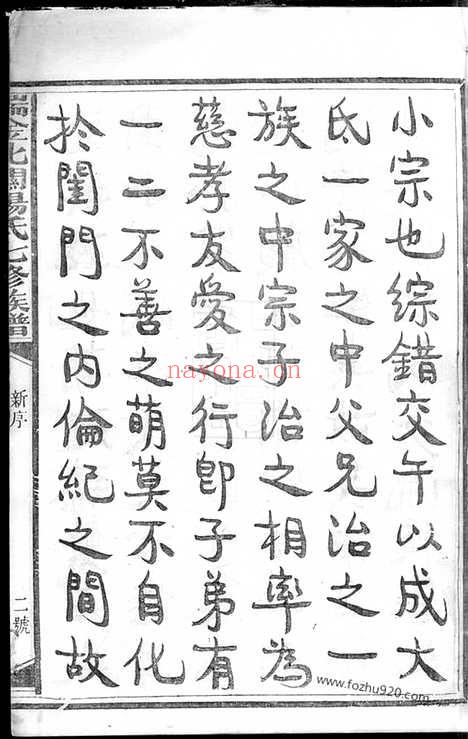 小宗也綜錯交午以成大
氏一家之中父兄治之一
族之中宗子治之相率為
慈孝友愛之行即子弟有
一二不善之萌莫不自化
於閨門之内倫紀之間故
瑞金北關楊氏七修族譜
新序
二號
nayona.cn
www.fozhu920.com